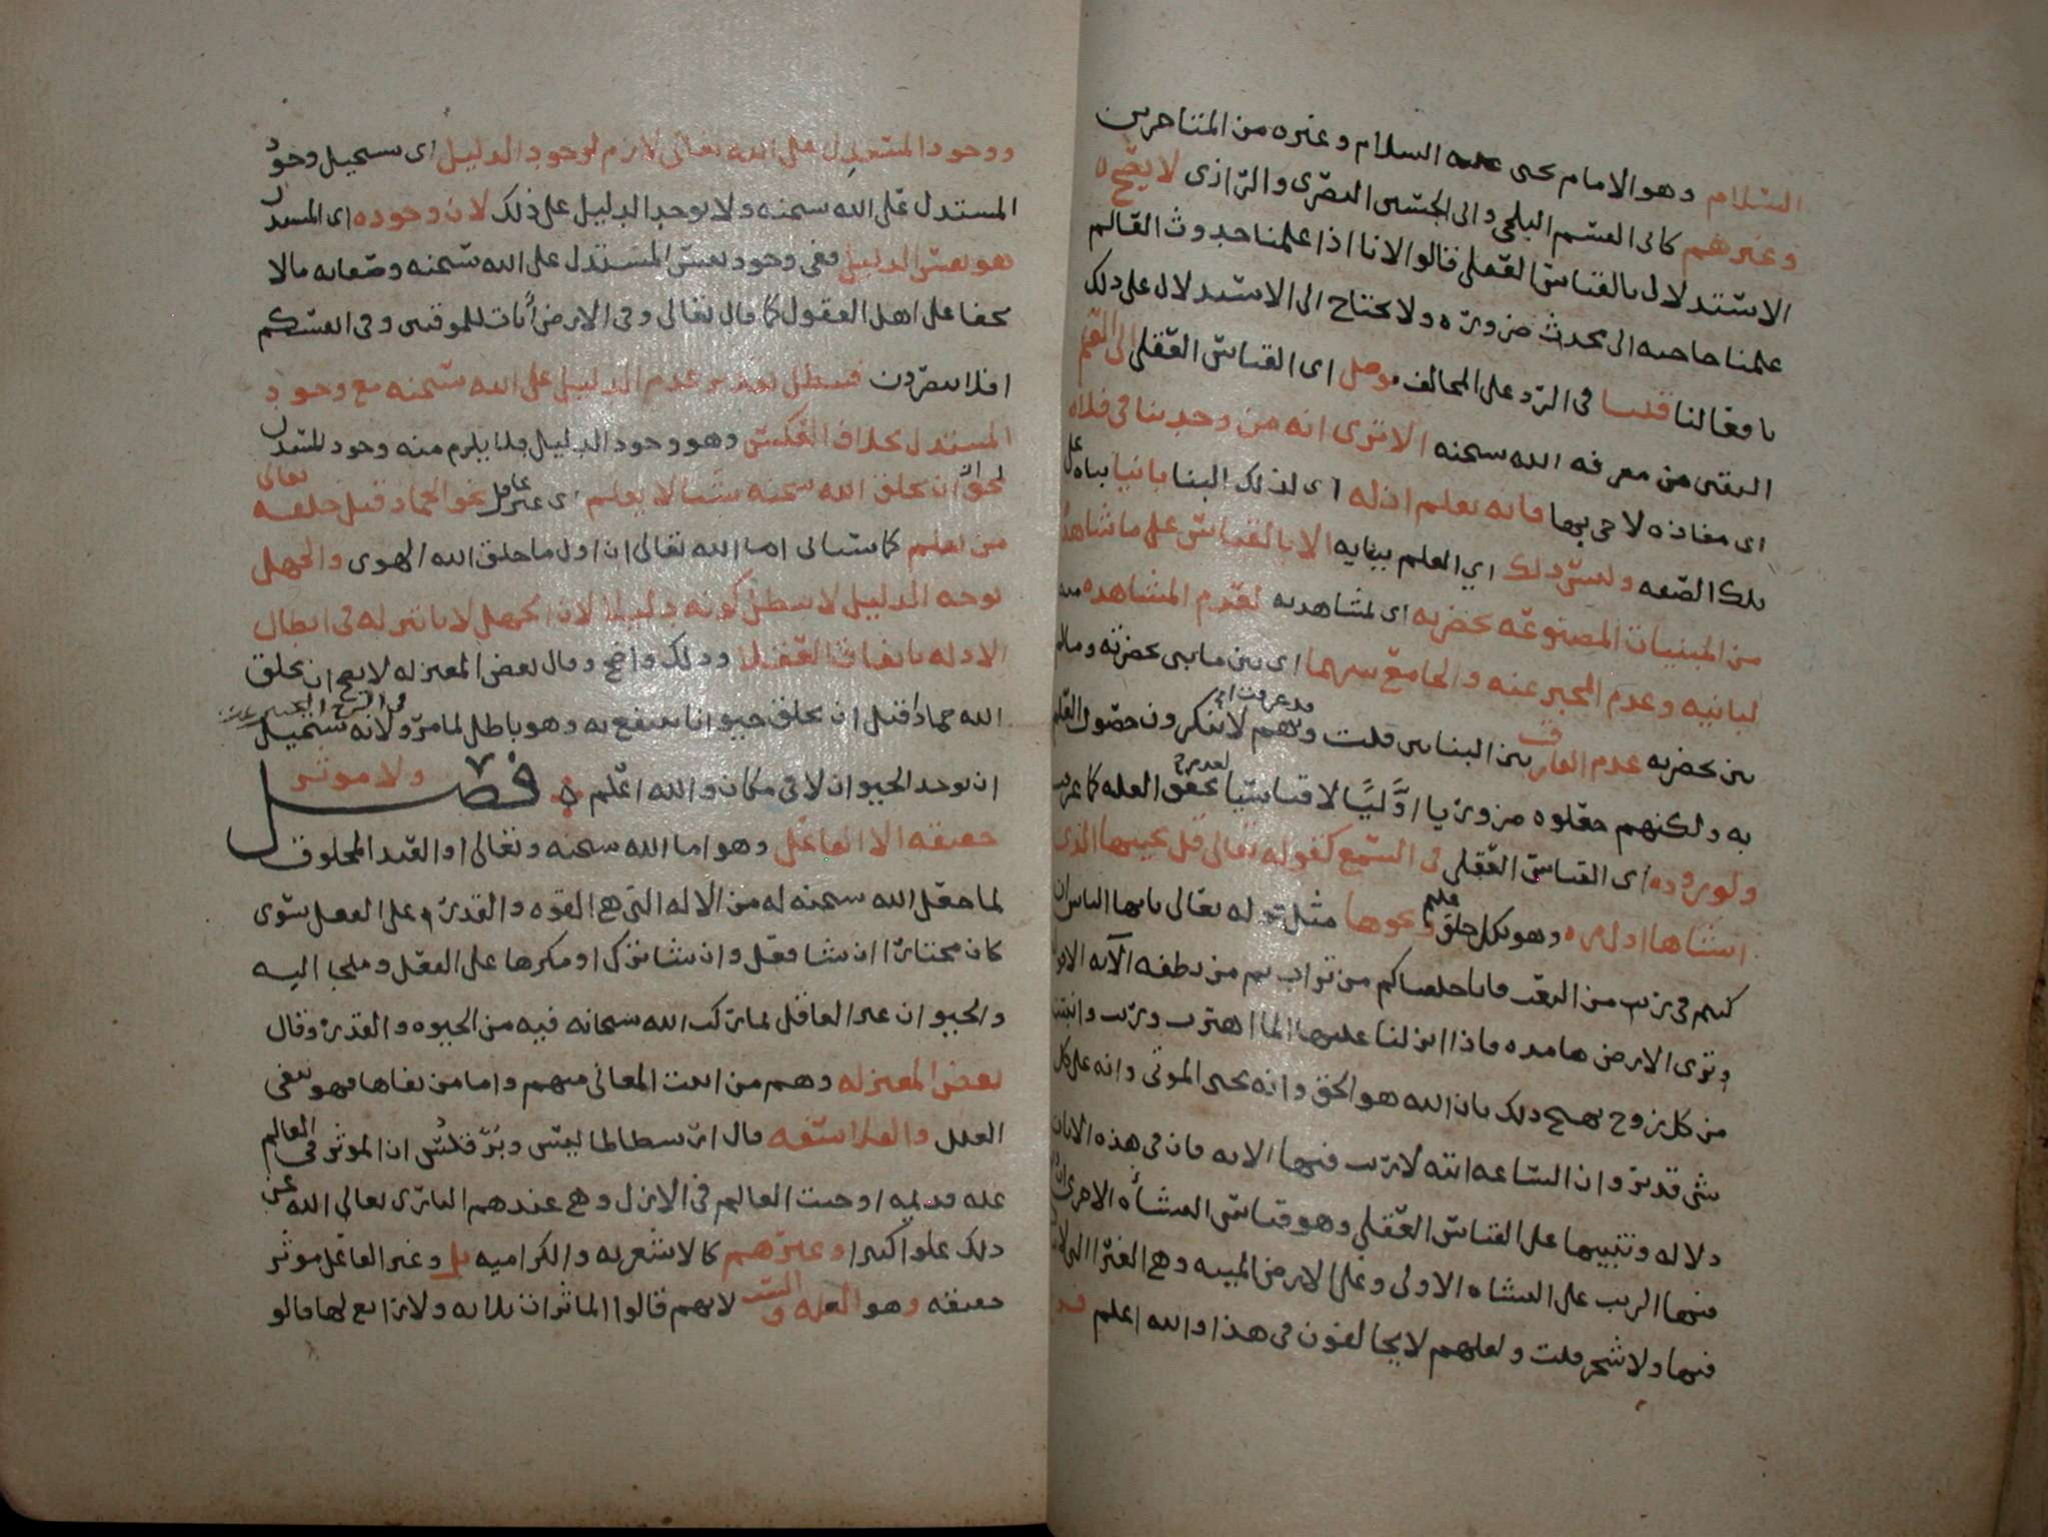 السلام وهو الامام يحيى عليه السلام وغيره من المتاخرين
وغيرهم كابي القسم البلخي وابي الحسين البصري والرازي لا يصح
الاستدلال بالقياس العقلي قالوا لانا اذا علمنا حدوث العالم
علمنا حاجته الى محدث ضرورة ولا يحتاج الى الاستدلال على ذلك
بافعالنا قلنا في الرد على المخالف موصل اي القياس العقلي الى العلم
اليقين من معرفة الله سبحنه الا ترى انه من وجد بنا في فلاه
اي مفازه لا حي بها فانه يعلم ان له اي لذلك البنا بانيا بناه على
تلك الصفه وليس ذلك اي العلم ببانيه الا بالقياس على ما شاهد
من المبنيات المصنوعه بحضرته اي لمشاهدته لعدم المشاهده منه
لبانيه وعدم المخبر عنه والجامع بينهما اي بين ما بني بحضرته وما لم
يبن بحضرته عدم الفارق بين البنائين قلت وهم قد عرفت انهم لا ينكرون حصول العلم
به ولكنهم جعلوه ضروريا اوليا لا قياسيا لعدم تحقق العله كما عرفت
ولوروده اي القياس العقلي في السمع كقوله تعالى قل يحييها الذي
انشاها اول مره وهو بكل خلق عليم ونحوها مثل قوله تعالى يا يها الناس ان
كنتم في ريب من البعث فانا خلقناكم من تراب ثم من نطفه الايه الى
وترى الارض هامده فاذا انزلنا عليها الما اهتزت وربت وانبتت
من كل زوج بهيج ذلك بان الله هو الحق وانه يحيى الموتى وانه على كل
شي قدير وان الساعه اتيه لا ريب فيها الايه فان في هذه الايات
دلاله وتنبيها على القياس العقلي وهو قياس النشاه الاخرى
فيها الريب على النشاه الاولى وعلى الارض الميته وهي الغبرا التي لا
فيها ولا شجر قلت ولعلهم لا يخالفون في هذا والله اعلم
ووجود المستدل على الله تعالى لازم لوجود الدليل اي يستحيل وجود
المستدل على الله سبحنه ولا يوجد الدليل على ذلك لان وجوده اي المستدل
هو نفس الدليل ففي وجود نفس المستدل على الله سبحنه وصفاته ما لا
يخفا على اهل العقول كما قال تعالى وفي الارض ايات للموقنين وفي انفسكم
افلا تبصرون فبطل تقدير عدم الدليل على الله سبحنه مع وجود
المستدل بخلاف العكس وهو وجود الدليل فلا يلزم منه وجود المستدل
لجواز ان يخلق الله سبحنه شيا لا يعلم اي غير عاقل نحو الجماد قبل خلقه تعالى
من يعلم كما سياتي ان شا الله تعالى ان اول ما خلق الله الهوى والجهل
بوجه الدليل لا يبطل كونه دليلا لان الجهل لا تاثير له في ابطال
الادله باتفاق العقلا وذلك واضح وقال بعض المعتزله لا يصح ان يخلق
الله جمادا قبل ان يخلق حيوانا ينتفع به وهو باطل لما مر ولانه يستحيل
ان يوجد الحيوان لا في مكان والله اعلم فصل ولا موثر
حقيقه الا الفاعل وهو اما الله سبحنه وتعالى او العبد المخلوق
لما جعل الله سبحنه له من الاله التي هي القوه والقدره على الفعل سوى
كان مختارا ان شا فعل وان شا ترك او مكرها على الفعل وملجا اليه
والحيوان غير العاقل لما ركب الله سبحانه فيه من الحيوه والقدره وقال
بعض المعتزله وهم من اثبت المعاني منهم واما من نفاها فهو ينفي
العلل والفلاسفه قال ارسطاطاليس وبرقلس ان الموثر في العالم
عله قديمه اوجبت العالم في الازل وهي عندهم الباري تعالى الله عن
ذلك علوا كبيرا وغيرهم كالاشعريه والكراميه بل وغير الفاعل موثر
حقيقه وهو العله والسبب لانهم قالوا الماثرات ثلاثه ولا رابع لها قالو